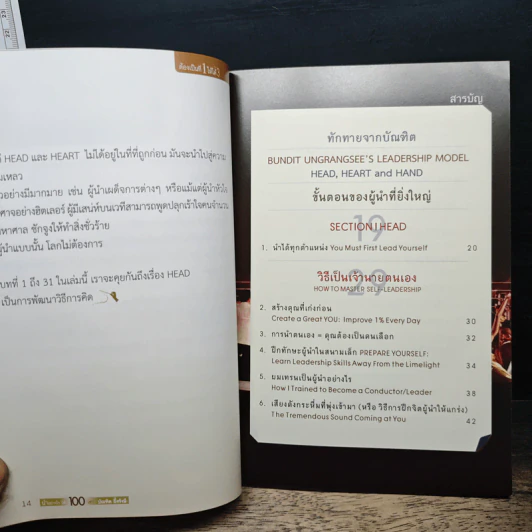 ต้องเป็นที่ 1
HEAD และ HEART ไม่ได้อยู่ในที่ที่ถูกก่อน มันจะนำไปสู่ความ
มเหลว
วอย่างมีมากมาย เช่น ผู้นำเผด็จการต่างๆ หรือแม้แต่ผู้นำทั่วโลก
ศาจอย่างฮิตเลอร์ ผู้มีเสน่ห์บนเวทีสามารถพูดปลุกเร้าใจคนจำนวน
หาศาล ชักจูงให้ทำสิ่งชั่วร้าย
ผู้นำแบบนั้น โลกไม่ต้องการ
บทที่ 1 ถึง 31 ในเล่มนี้ เราจะคุยกันถึงเรื่อง HEAD
เป็นการพัฒนาวิธีการคิด
14
100
สารบัญ
ทักทายจากบัณฑิต
BUNDIT UNGRANGSEE'S LEADERSHIP MODEL
HEAD, HEART and HAND
ขั้นตอนของผู้นำที่ยิ่งใหญ่
19
SECTION I HEAD
1. นำได้ทุกตำแหน่ง You Must First Lead Yourself 20
29
วิธีเป็นเจ้านายตนเอง
HOW TO MASTER SELF-LEADERSHIP
2. สร้างคุณที่เก่งก่อน
Create a Great YOU: Improve 1% Every Day 30
3. การนำตนเอง = คุณต้องเป็นคนเลือก 32
4. ฝึกทักษะผู้นำในสนามเล็ก PREPARE YOURSELF:
Learn Leadership Skills Away From the Limelight 34
5. ผมเทรนเป็นผู้นำอย่างไร
How I Trained to Become a Conductor/Leader 38
6. เสียงดังกระหึ่มที่พุ่งเข้ามา (หรือ วิธีการฝึกจิตผู้นำให้แกร่ง)
The Tremendous Sound Coming at You 42